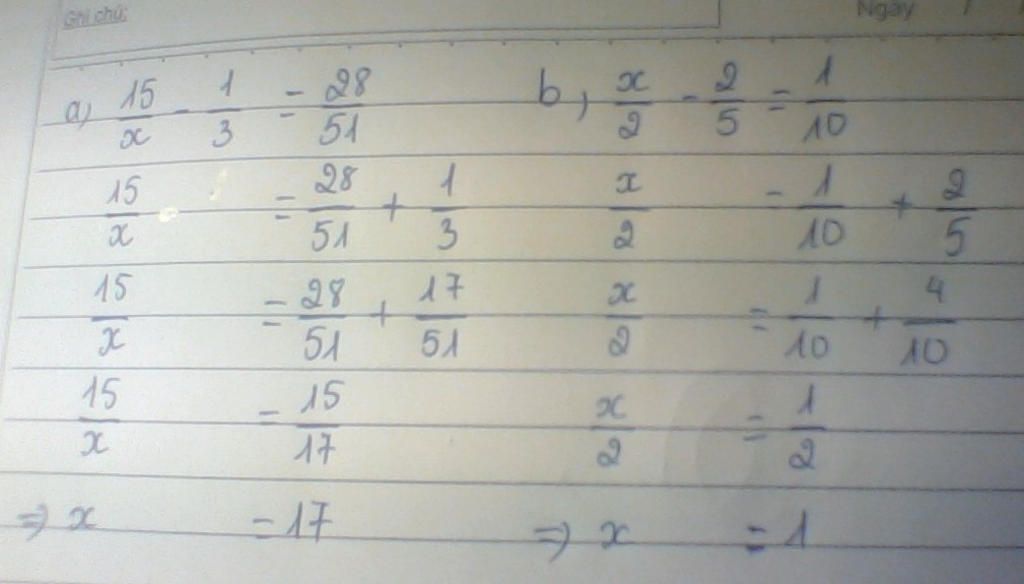 Ghi chú:
Ngày / /
a) 15/x - 1/3 = 28/51
15/x = 28/51 + 1/3
15/x = 28/51 + 17/51
15/x = 15/17
=> x = 17
b) x/2 - 2/5 = 1/10
x/2 = 1/10 + 2/5
x/2 = 1/10 + 4/10
x/2 = 1/2
=> x = 1